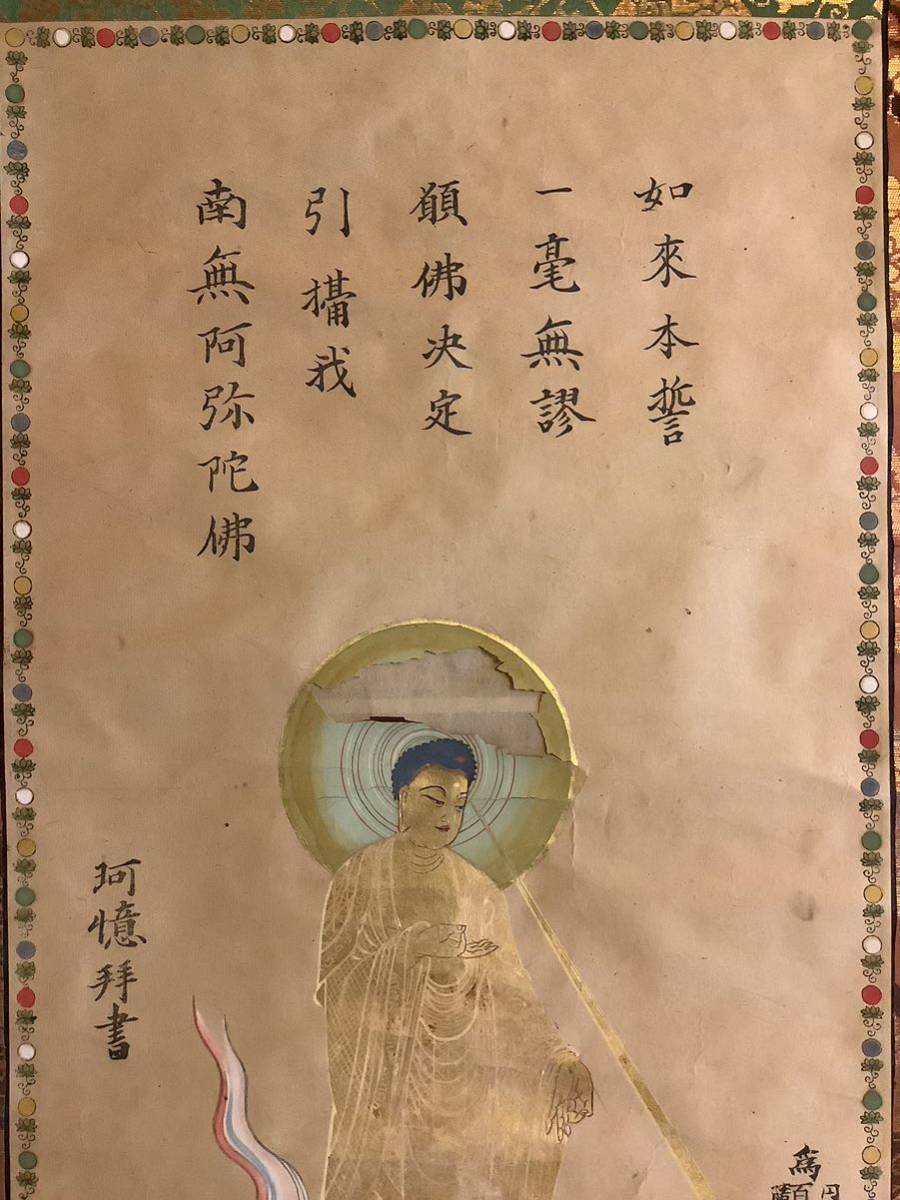 如來本誓
一毫無謬
願佛决定
引攝我
南無阿弥陀佛
珂憶拜書
為